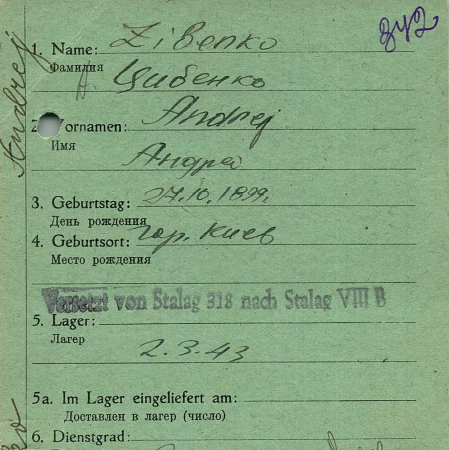 842
1. Name: Zibenko
Фамилия Цибенко
2. Vornamen: Andrej
Имя
Андрей
3. Geburtstag: 27.10.1899.
День рождения
4. Geburtsort: гор. Киев
Место рождения
Versetzt von Stalag 318 nach Stalag VIII B
5. Lager:
Лагер 2.3.43
5a. Im Lager eingeliefert am:
Доставлен в лагер (число)
6. Dienstgrad:
Andrej